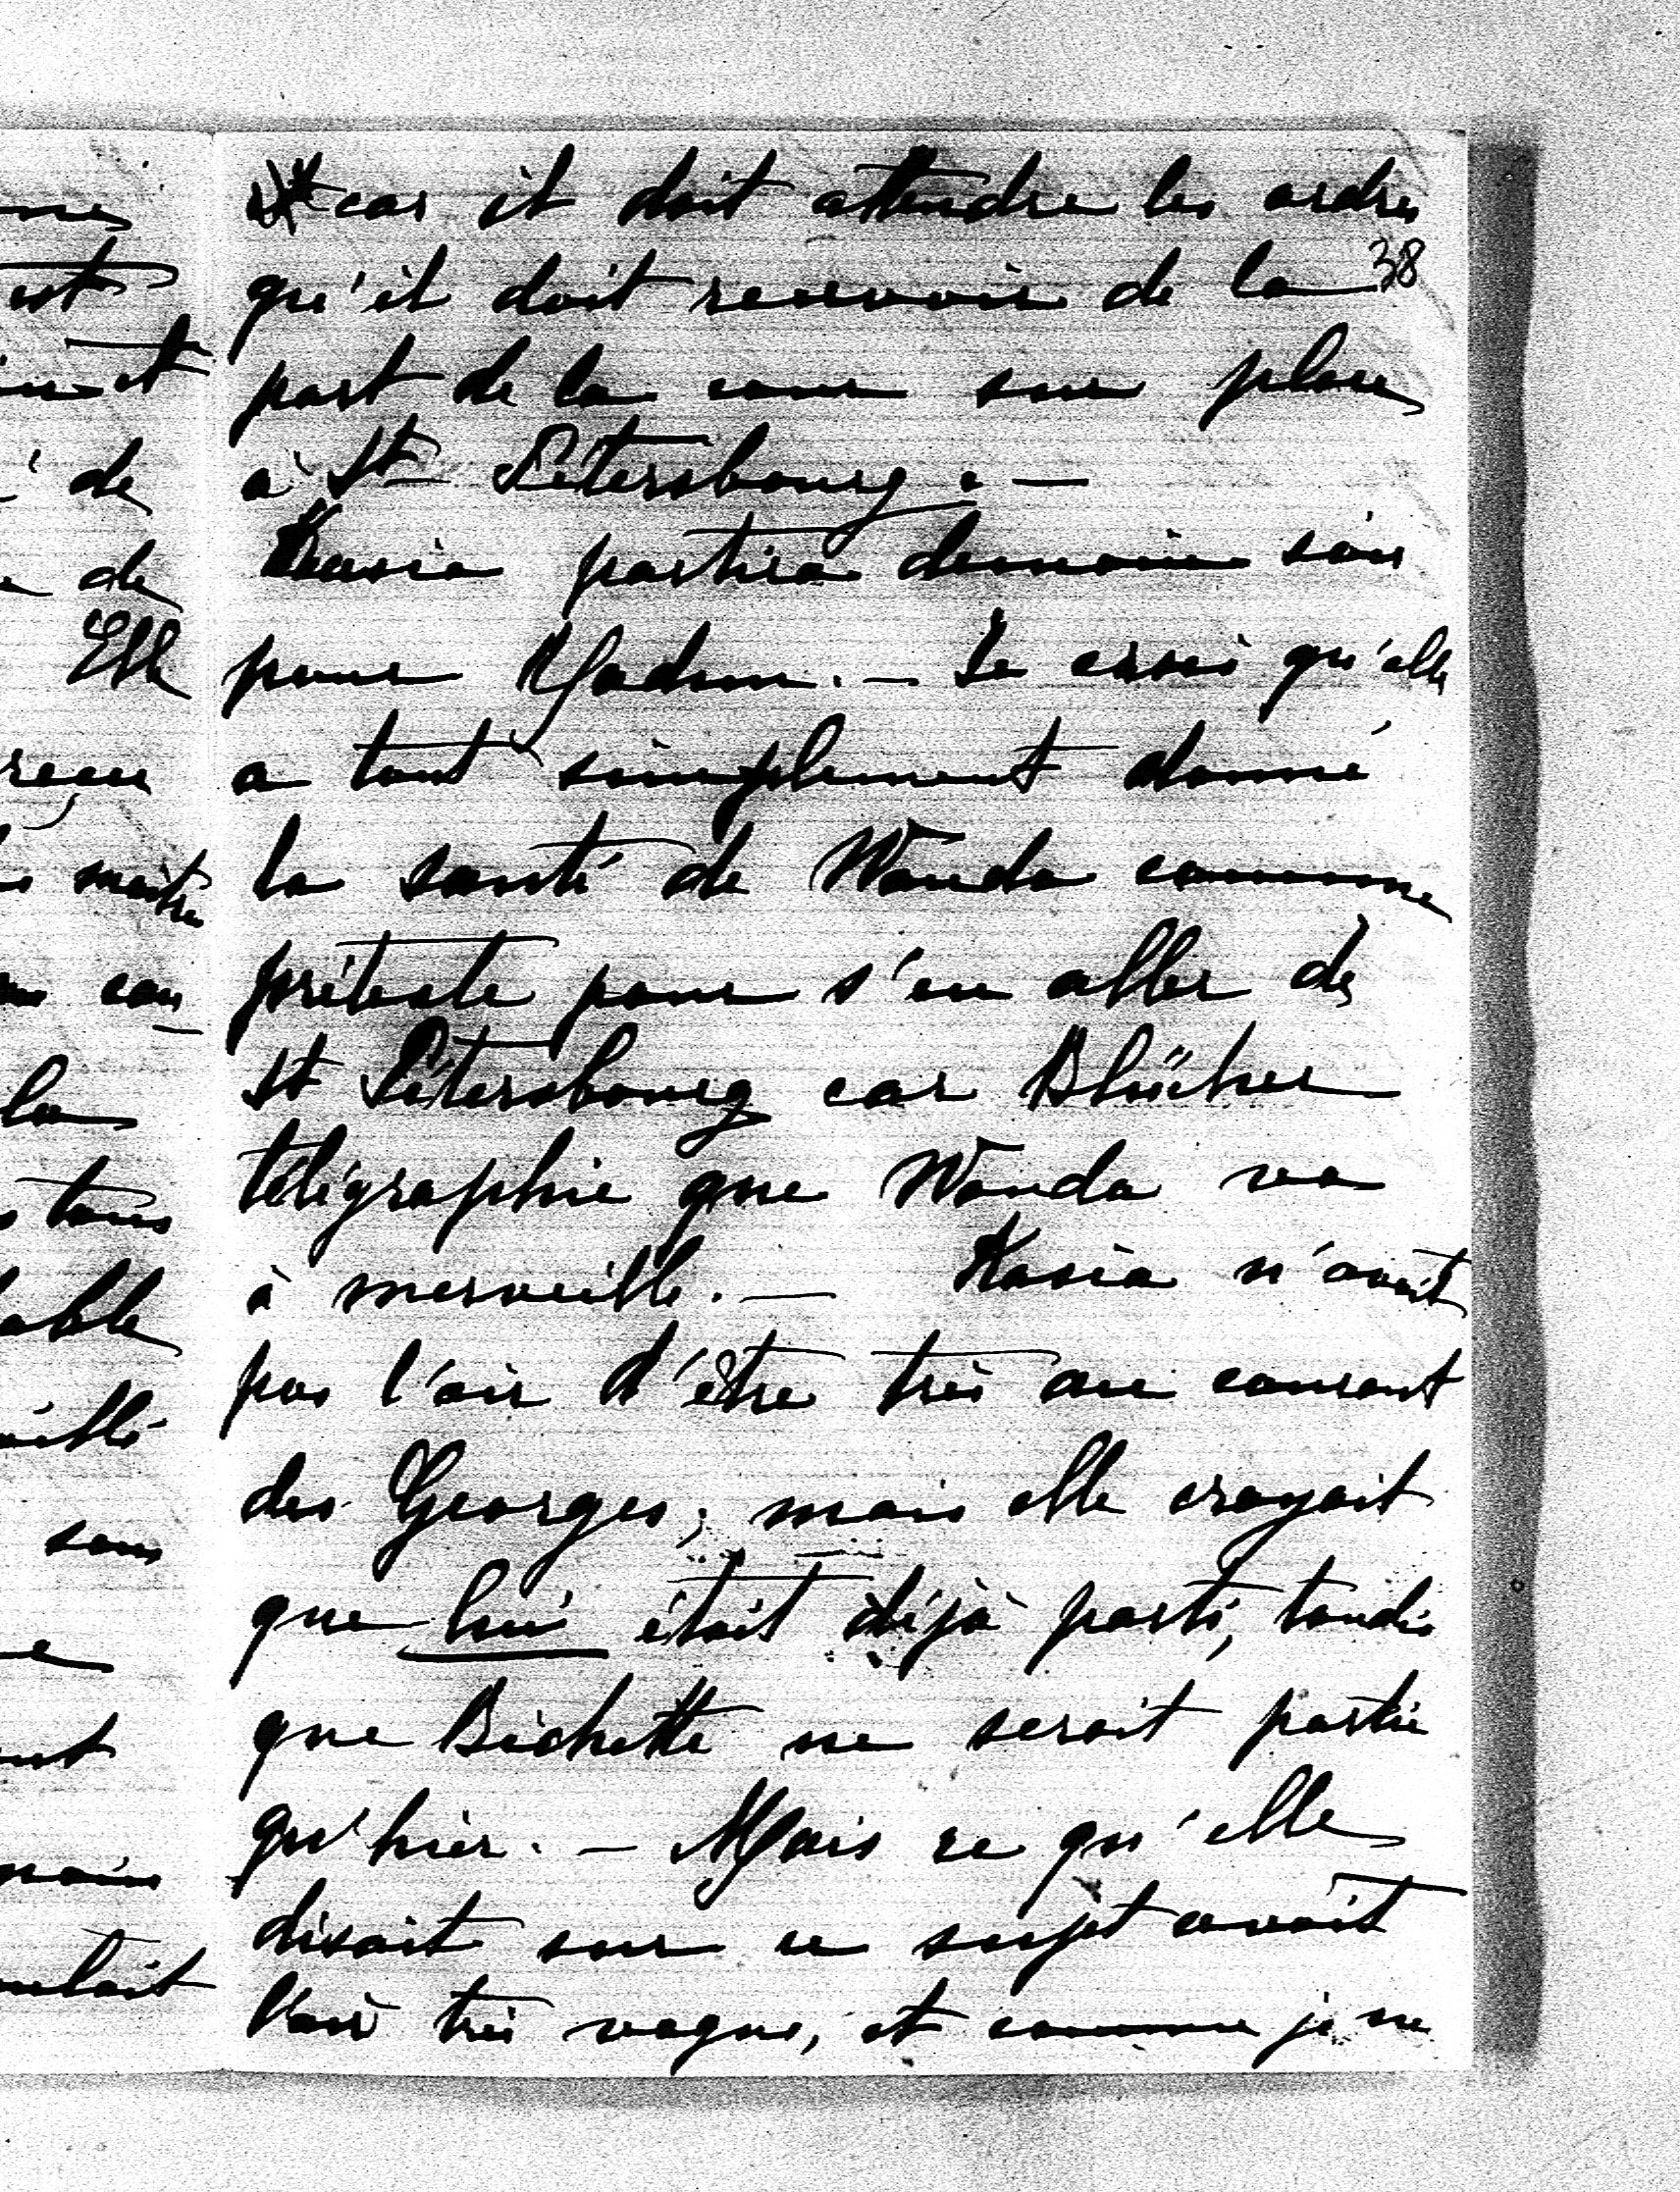 car il doit attendre les ordres
38
qu'il doit recevoir de la
part de la cour sur place
à St Pétersbourg. —
Kasia partira demain soir
pour Yadun. — Je crois qu'elle
a tout simplement donné
la santé de Wanda comme
prétexte pour s'en aller de
St Pétersbourg car Blücher
télégraphie que Wanda va
à merveille. — Kasia n'avait
pas l'air d'être très au courant
des Georges, mais elle croyait
que lui était déjà parti, tandis
que Bichette ne serait partie
qu'hier. — Mais ce qu'elle
disait sur ce sujet avait
l'air très vague, et comme je ne